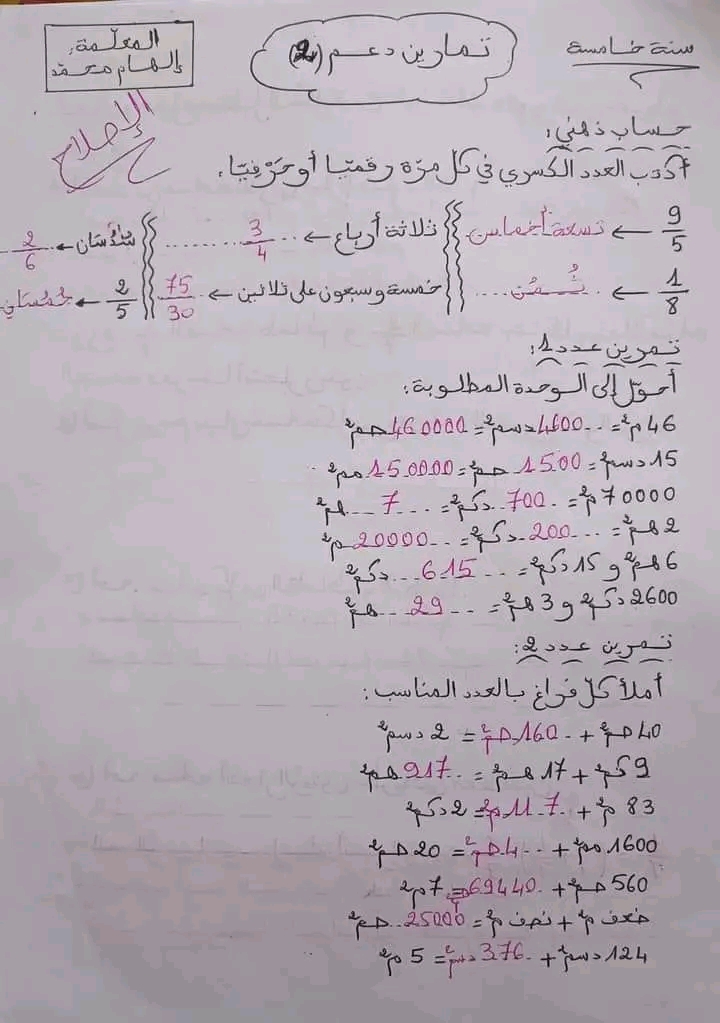 سنة خامسة
تمارين دعم (2)
المعلّمة:
إلهام محمّد
الإصلاح
حساب ذهني:
أكتب العدد الكسري في كلّ مرّة رقميّا أو حَرْفيّا.
9/5 ← تسعة أخماس ثلاثة أرباع ← 3/4 سُدُسَان ← 2/6
1/8 ← ثُمُن خمسة وسبعون على ثلاثين ← 75/30 2/5 ← خُمُسَان
تمرين عدد 1:
أحوّل إلى الوحدة المطلوبة:
46 م² = 4600 دسم² = 460000 صم²
15 دسم² = 1500 صم² = 150000 مم²
70000 م² = 700 دكم² = 7 هم²
2 هم² = 200 دكم² = 20000 م²
6 هم² و 15 دكم² = 615 دكم²
2600 دكم² و 3 هم² = 29 هم²
تمرين عدد 2:
أملأ كلّ فراغ بالعدد المناسب:
40 صم² + 160 صم² = 2 دسم²
9 كم² + 17 هم² = 917 هم²
83 م² + 117 م² = 2 دكم²
1600 مم² + 4 صم² = 20 صم²
560 صم² + 69440 = 7 م²
ضعف م² + نصف م² = 25000 صم²
124 دسم² + 376 دسم² = 5 م²